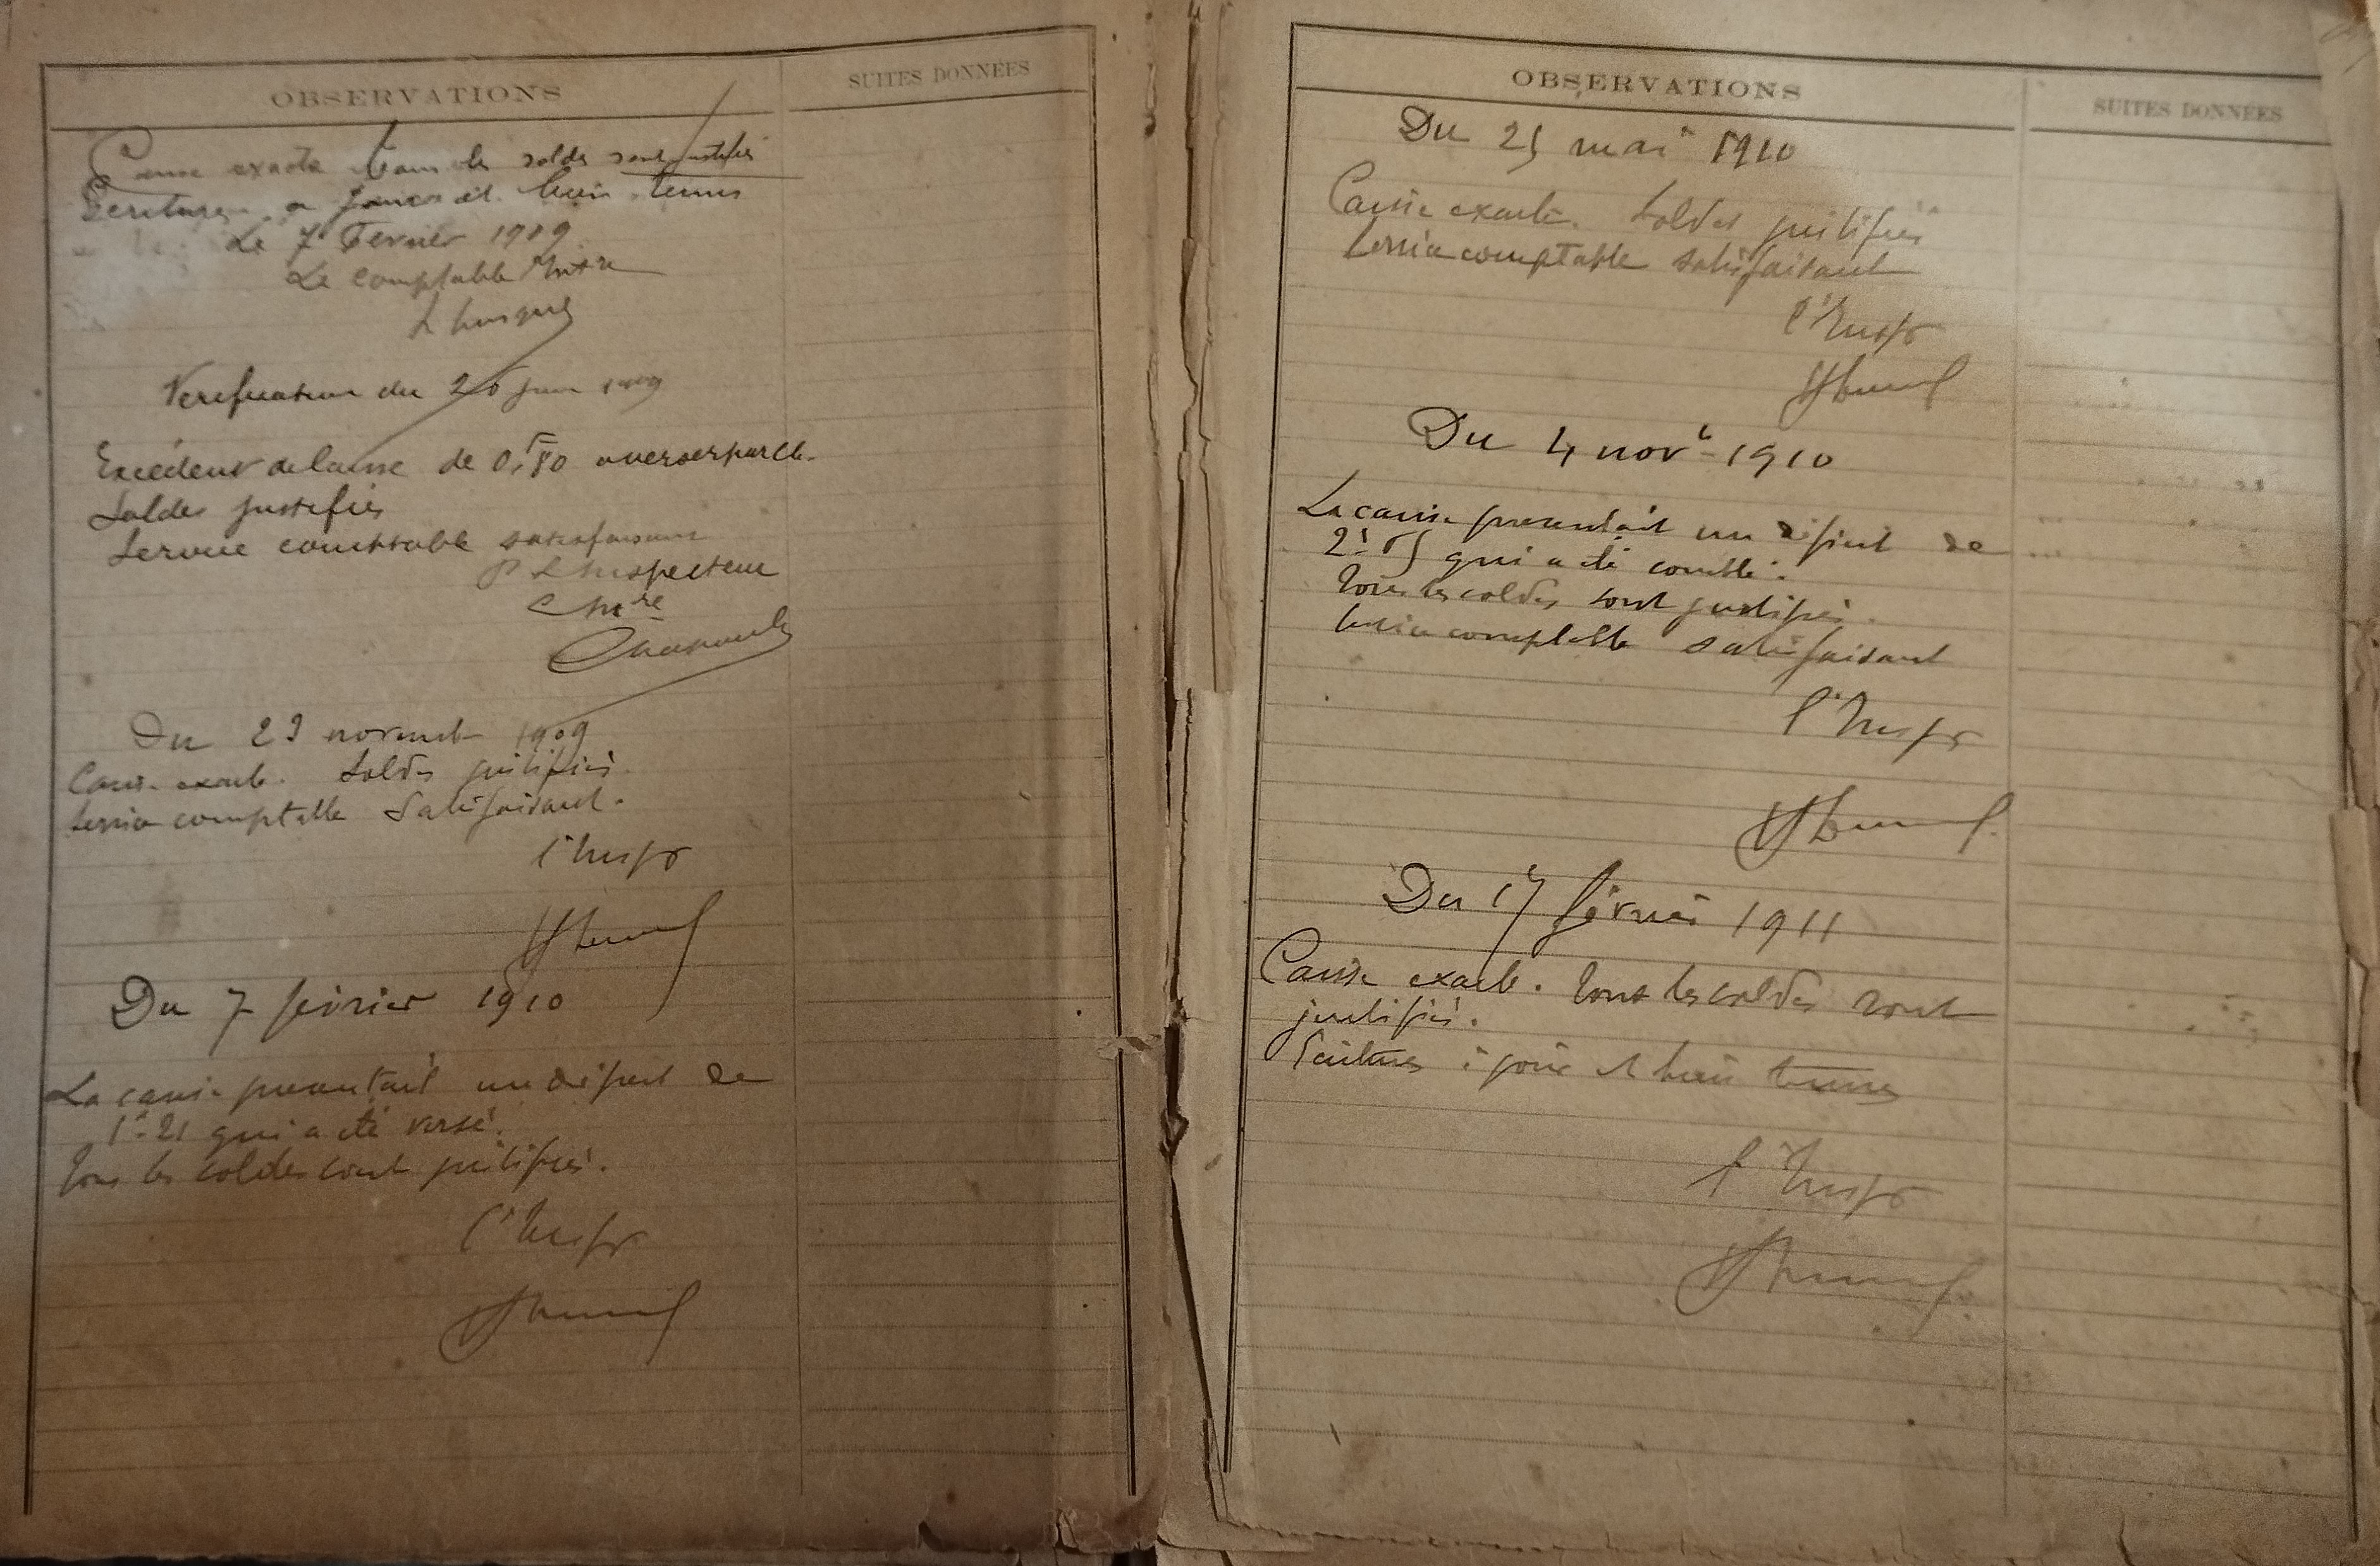 OBSERVATIONS
SUITES DONNÉES
Caisse exacte Tous les soldes sont justifiés
Ecritures a jour et bien tenues
Le 7 Fevrier 1909
Le comptable
Verification du 26 juin 1909
Excédent de caisse de 0,80 a verser par le
Soldes justifiés
Service comptable satisfaisant
P L'Inspecteur
Du 23 novemb 1909
Caisse exacte. Soldes justifiés.
Service comptable Satisfaisant.
l'Inspr
Du 7 février 1910
La caisse présentait un déficit de
1f21 qui a été versé.
Tous les soldes sont justifiés.
l'Inspr
OBSERVATIONS
SUITES DONNÉES
Du 25 mai 1910
Caisse exacte. Soldes justifiés
Service comptable satisfaisant
l'Inspr
Du 4 novb 1910
La caisse présentait un déficit de
qui a été comblé.
Tous les soldes sont justifiés.
Service comptable satisfaisant
l'Inspr
Du 17 février 1911
Caisse exacte. Tous les soldes sont
justifiés.
Ecritures à jour et bien tenues
l'Inspr